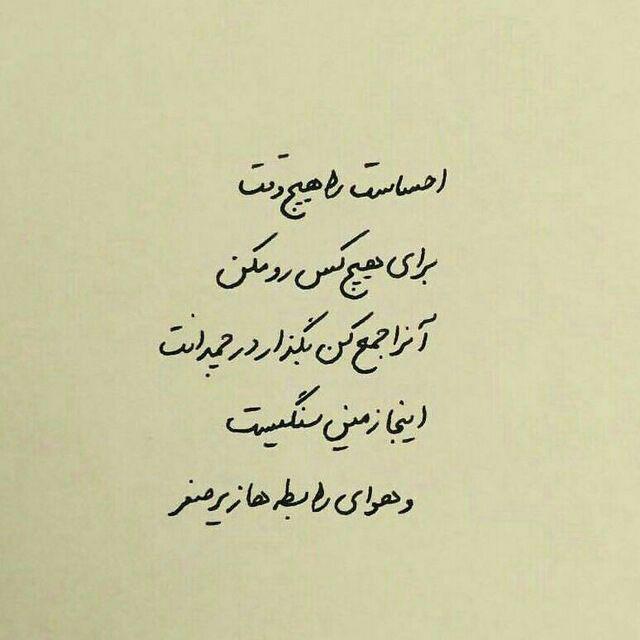 احساست را هیچ وقت
برای هیچ کس رو مکن
آنرا جمع کن بگذار در چمدانت
اینجا زمین سنگیست
و هوای رابطه ها زیر صفر